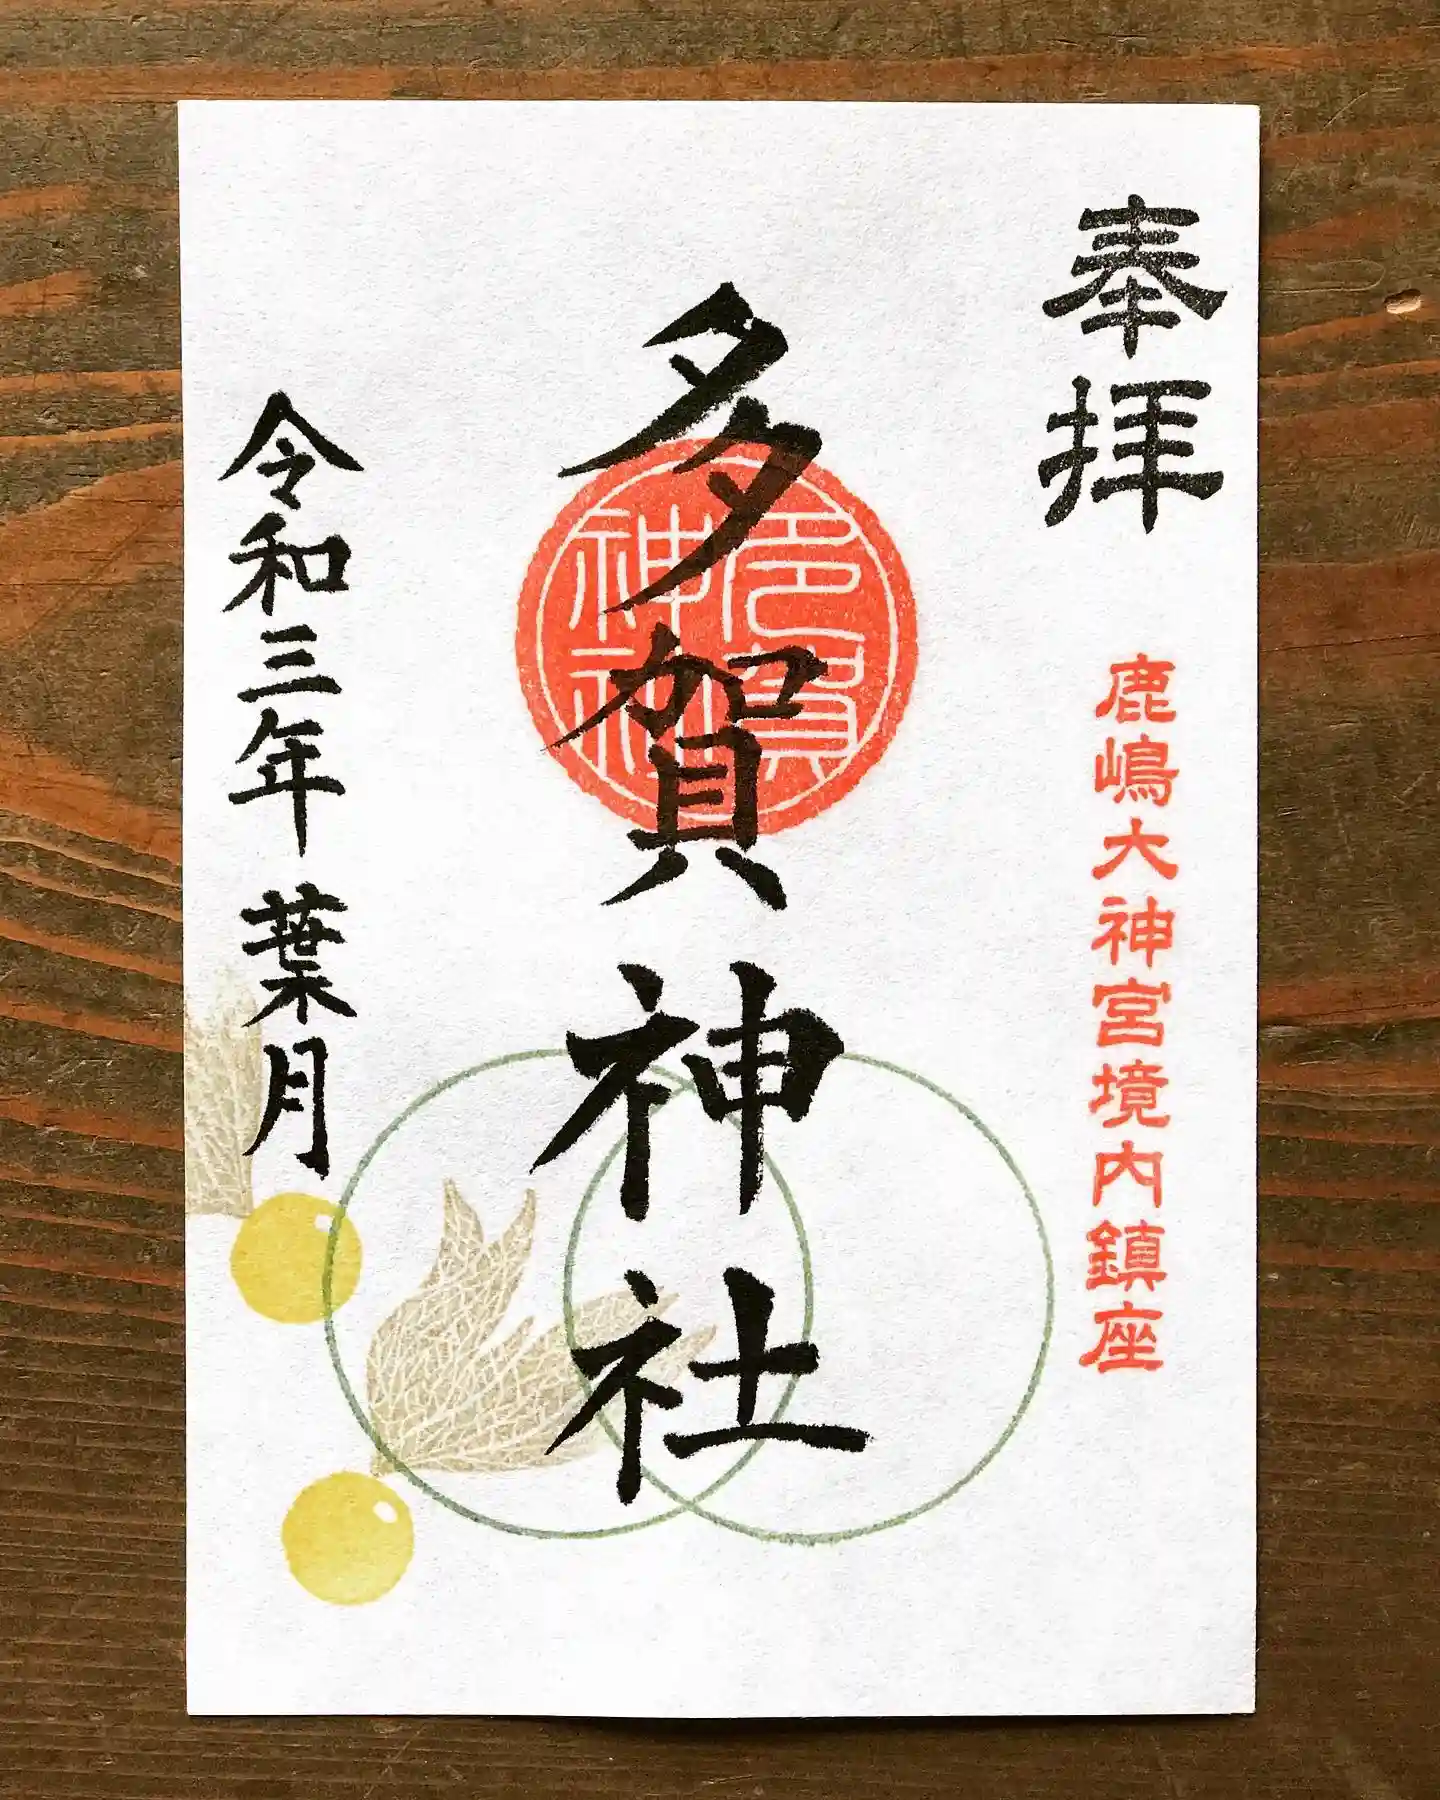 奉拝
鹿嶋大神宮境内鎮座
多賀神社
多賀
神社
令和三年 葉月